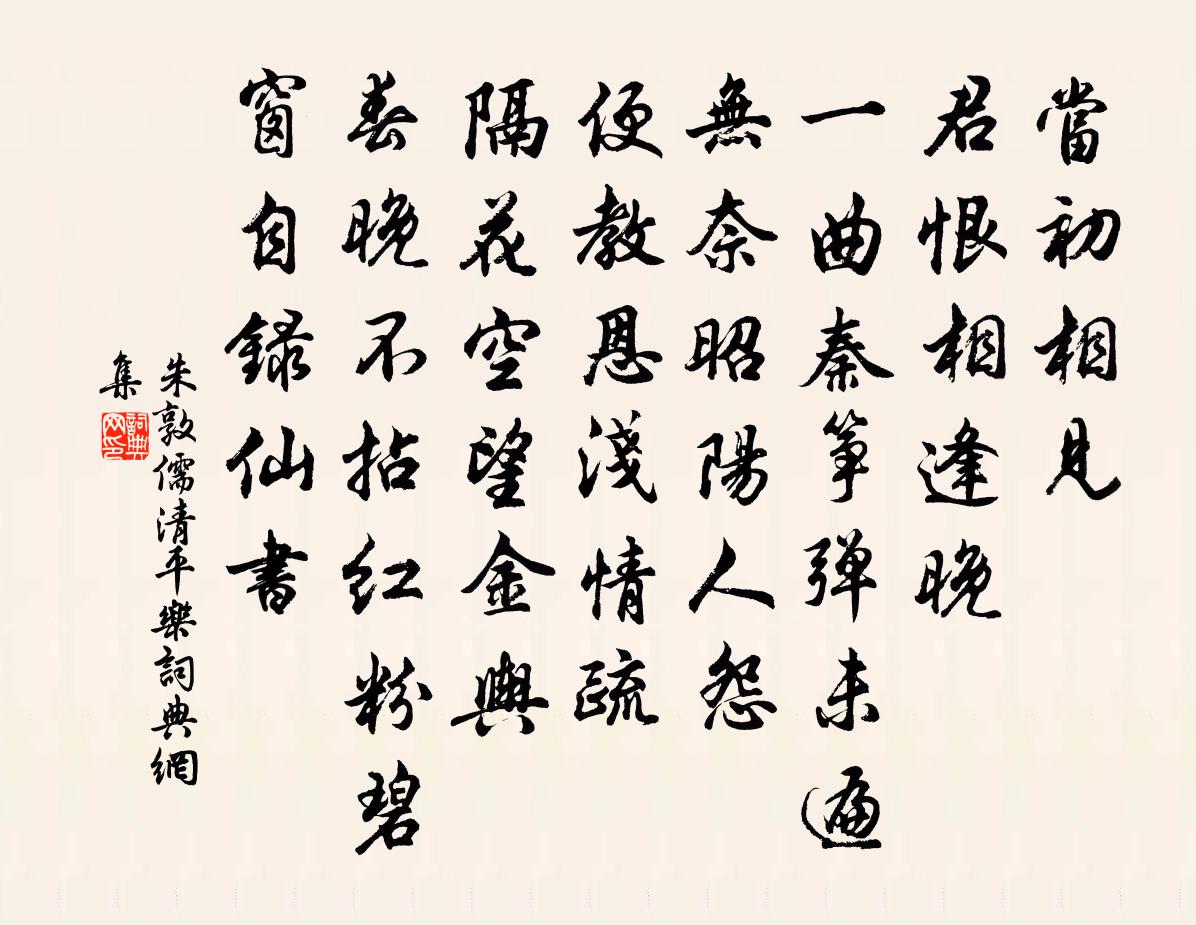 當初相見
君恨相逢晚
一曲秦箏彈未遍
無奈昭陽人怨
便教恩淺情疏
隔花空望金輿
春晚不拈紅粉碧
窗自錄仙書
朱敦儒清平樂詞典網
集
詞典
网印